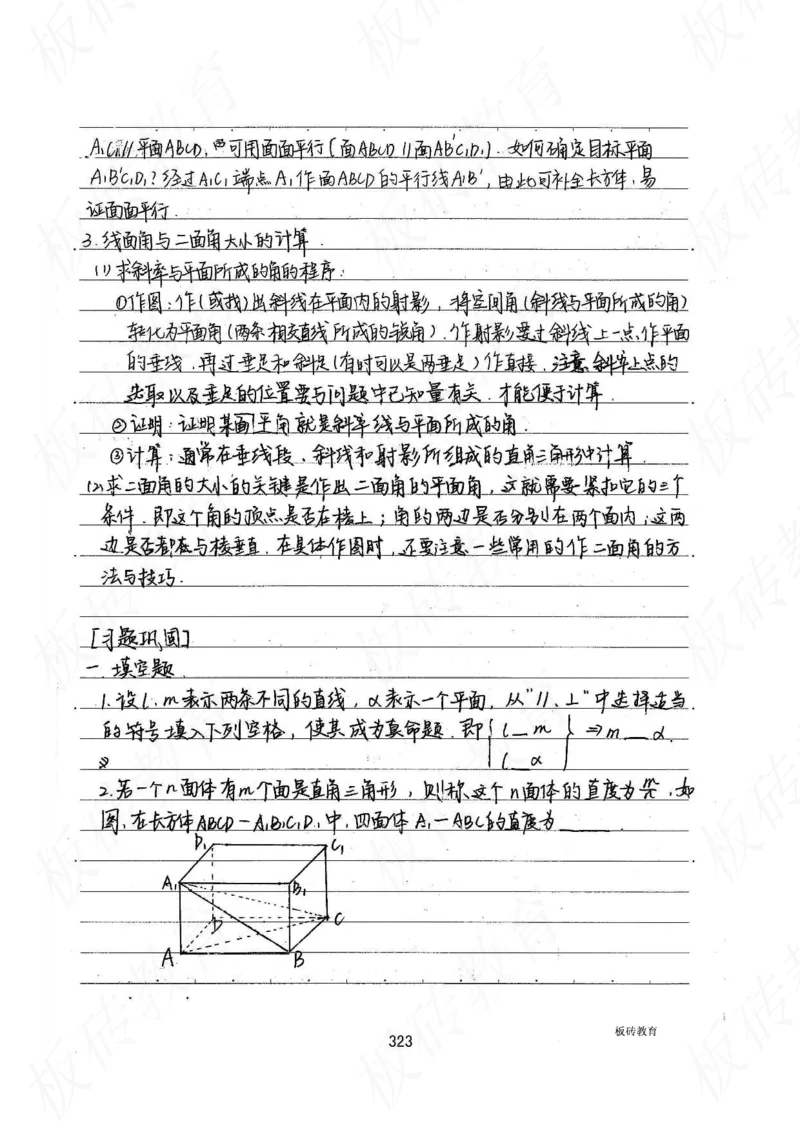 A₁C₁//平面ABCD,可用面面平行(面ABCD//面A₁B'C₁D₁).如何确定目标平面
A₁B'C₁D₁?经过A₁C₁端点A₁作面ABCD的平行线A₁B',由此可补全长方体,易
证面面平行.
3.线面角与二面角大小的计算.
(1)求斜率与平面所成的角的程序:
①作图:作(或找)出斜线在平面内的射影,将空间角(斜线与平面所成的角)
转化为平面角(两条相交直线所成的锐角).作射影要过斜线上一点作平面
的垂线,再过垂足和斜足(有时可以是两垂足)作直接,注意斜率上点的
选取以及垂足的位置要与问题中已知量有关,才能便于计算.
②证明:证明某平角就是斜率线与平面所成的角.
③计算:通常在垂线段、斜线和射影所组成的直角三角形中计算.
(2)求二面角的大小的关键是作出二面角的平面角,这就需要紧扣它的三个
条件,即这个角的顶点是否在棱上;角的两边是否分别在两个面内;这两
边是否都在与棱垂直.在具体作图时,还要注意一些常用的作二面角的方
法与技巧.
[习题巩固]
一.填空题
1.设l、m表示两条不同的直线,α表示一个平面,从"//、⊥"中选择适当
的符号填入下列空格,使其成为真命题.即{l__m
l__α}⇒m__α.
2.若一个n面体有m个面是直角三角形,则称这个n面体的直度为m/n,如
图,在长方体ABCD-A₁B₁C₁D₁中,四面体A₁-ABC的直度为______.
D₁
C₁
A₁
B₁
D
C
A
B
323
板砖教育